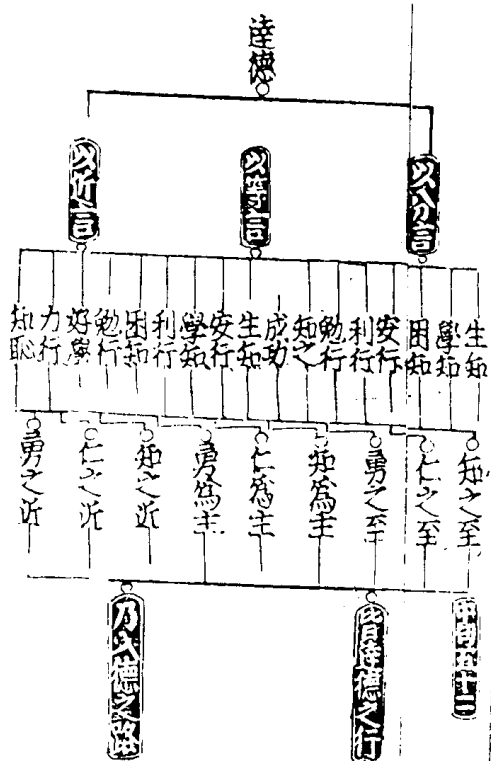 達德
以分言
以等言
以近言
生知
學知
困知
安行
利行
勉行
知之
成功
生知
安行
學知
利行
困知
勉行
好學
力行
知恥
知之至
仁之至
勇之至
知爲主
仁爲主
勇爲主
知之近
仁之近
勇之近
中庸五十二
皆達德之行
乃入德之路